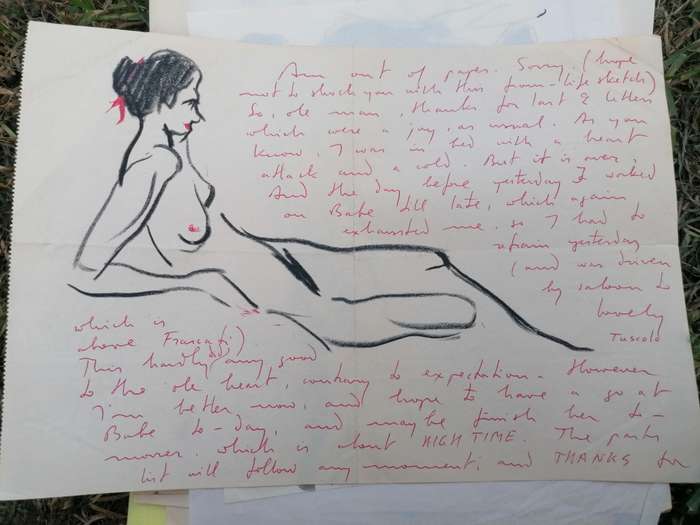 Am out of paper. Sorry. (hope
not to shock you with this from-life sketch)
So, ole man, thanks for last 2 letters
which were a joy, as usual. As you
know, I was in bed with a heart
attack and a cold. But it is over,
And the day before yesterday I worked
on Babe till late, which again
exhausted me. so I had to
abstain yesterday
(and was driven
by saloon to
lovely
Tuscolo
which is
above Frascati)
This hardly any good
to the ole heart, contrary to expectation. However
I'm better, now, and hope to have a go at
Babe to-day, and maybe finish her to-
morrow. which is about HIGH TIME. The parts
list will follow any moment; and THANKS for